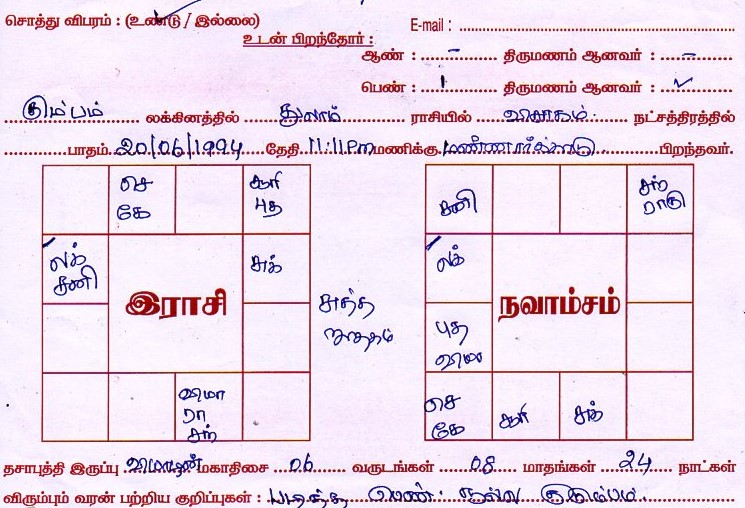 சொத்து விபரம் : (உண்டு / இல்லை) E-mail :
உடன் பிறந்தோர் :
ஆண் : – திருமணம் ஆனவர் : –
பெண் : 1 திருமணம் ஆனவர் : ✓
கும்பம் லக்கினத்தில் துலாம் ராசியில் விசாகம் நட்சத்திரத்தில்
பாதம் 20/06/1994 தேதி 11.11 Pm மணிக்கு மண்ணார்க்காடு பிறந்தவர்.
செ கே
சூரி புத
லக் சனி
சுக்
இராசி
வியா ரா சந்
சுத்த ஜாதகம்
சனி
சந் ராகு
லக்
நவாம்சம்
புத வியா
செ கே
சூரி
சுக்
தசாபுத்தி இருப்பு வியாழன் மகாதிசை 06 வருடங்கள் 08 மாதங்கள் 24 நாட்கள்
விரும்பும் வரன் பற்றிய குறிப்புகள் : படித்த பெண். நல்ல குடும்பம்